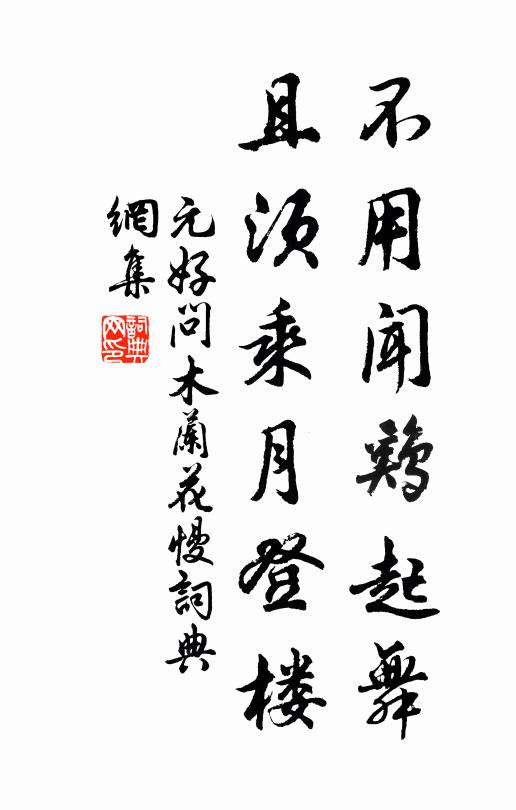 不用闻鸡起舞
且须乘月登楼
元好问木蘭花慢詞典
網集
詞典网印